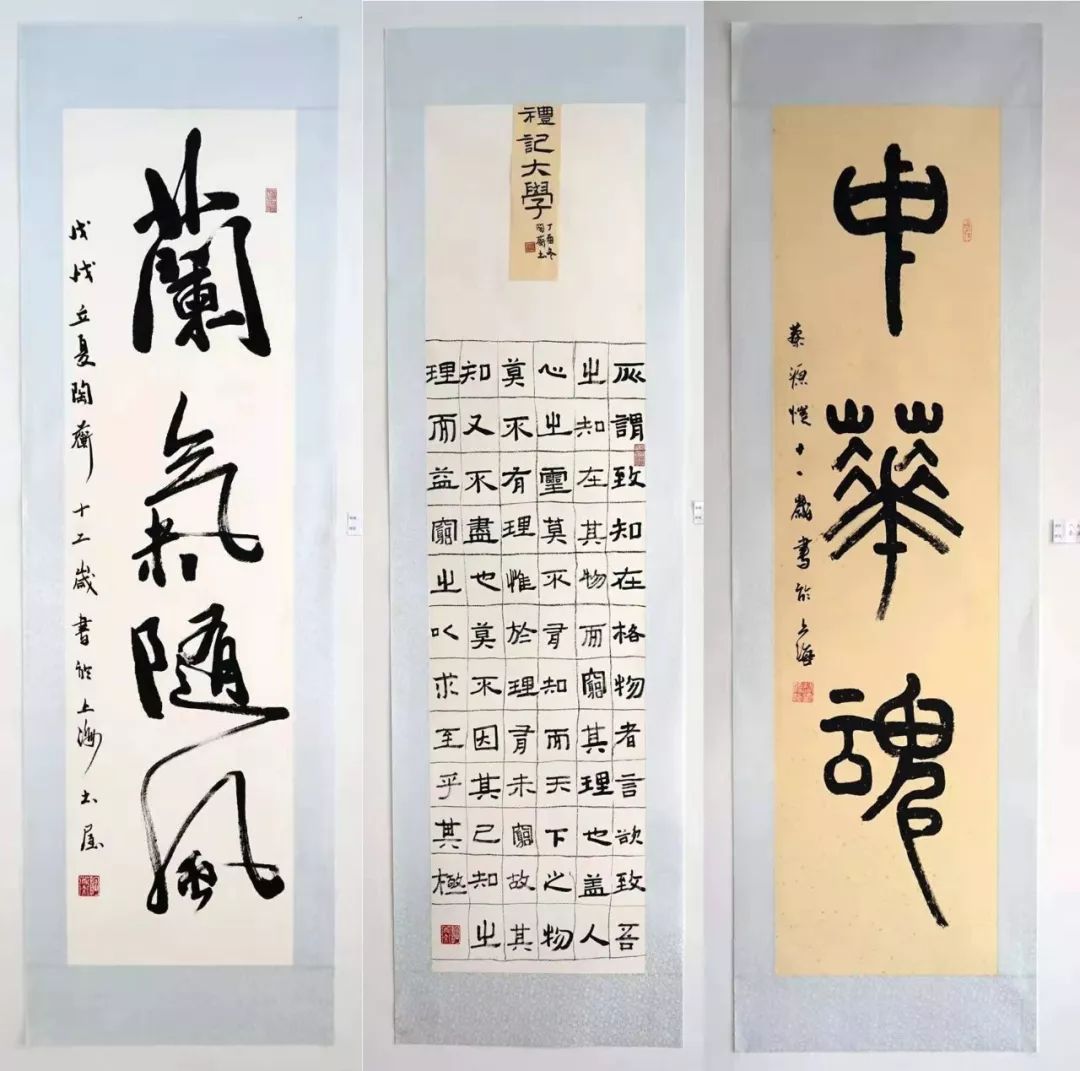 蘭氣隨風
戊戌立夏陶蘅十二歲書於上海書屋
禮記大學
丁酉冬
陶蘅書
所謂致知在格物者言欲致吾
之知在其物而窮其理也盖人
心之靈莫不有知而天下之物
莫不有理惟於理有未窮故其
知又不盡也莫不因其已知之
理而益窮之以求至乎其極
中華魂
蔡源愷十一歲書於上海